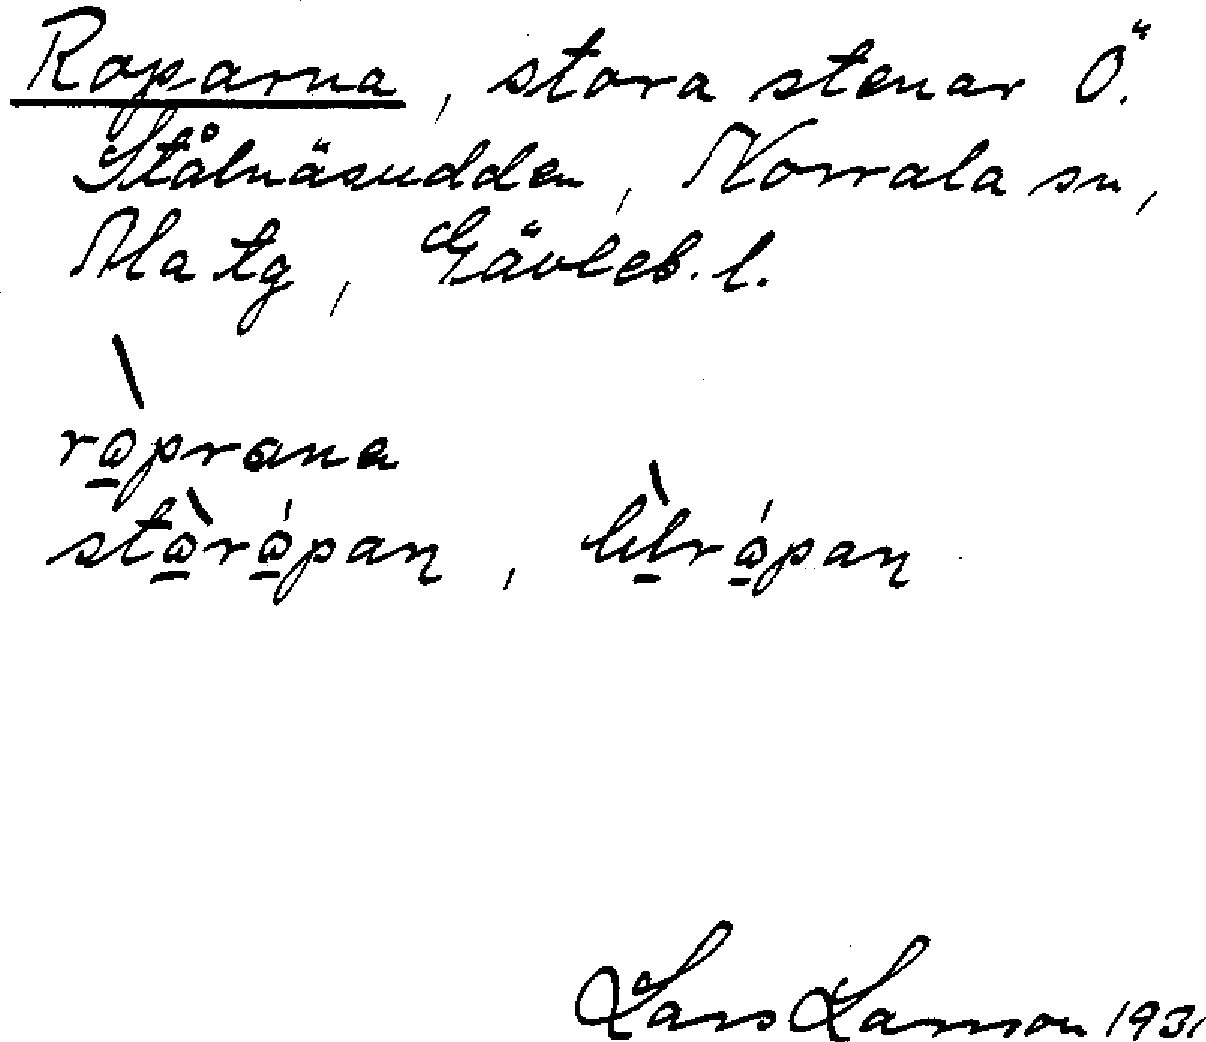 Roparna, stora stenar Ö.
Stålnäsudden, Norrala sn,
Ala tg, Gävleb. l.
ròprana
stòrópaη, lìlrópaη
Lars Larsson 1931